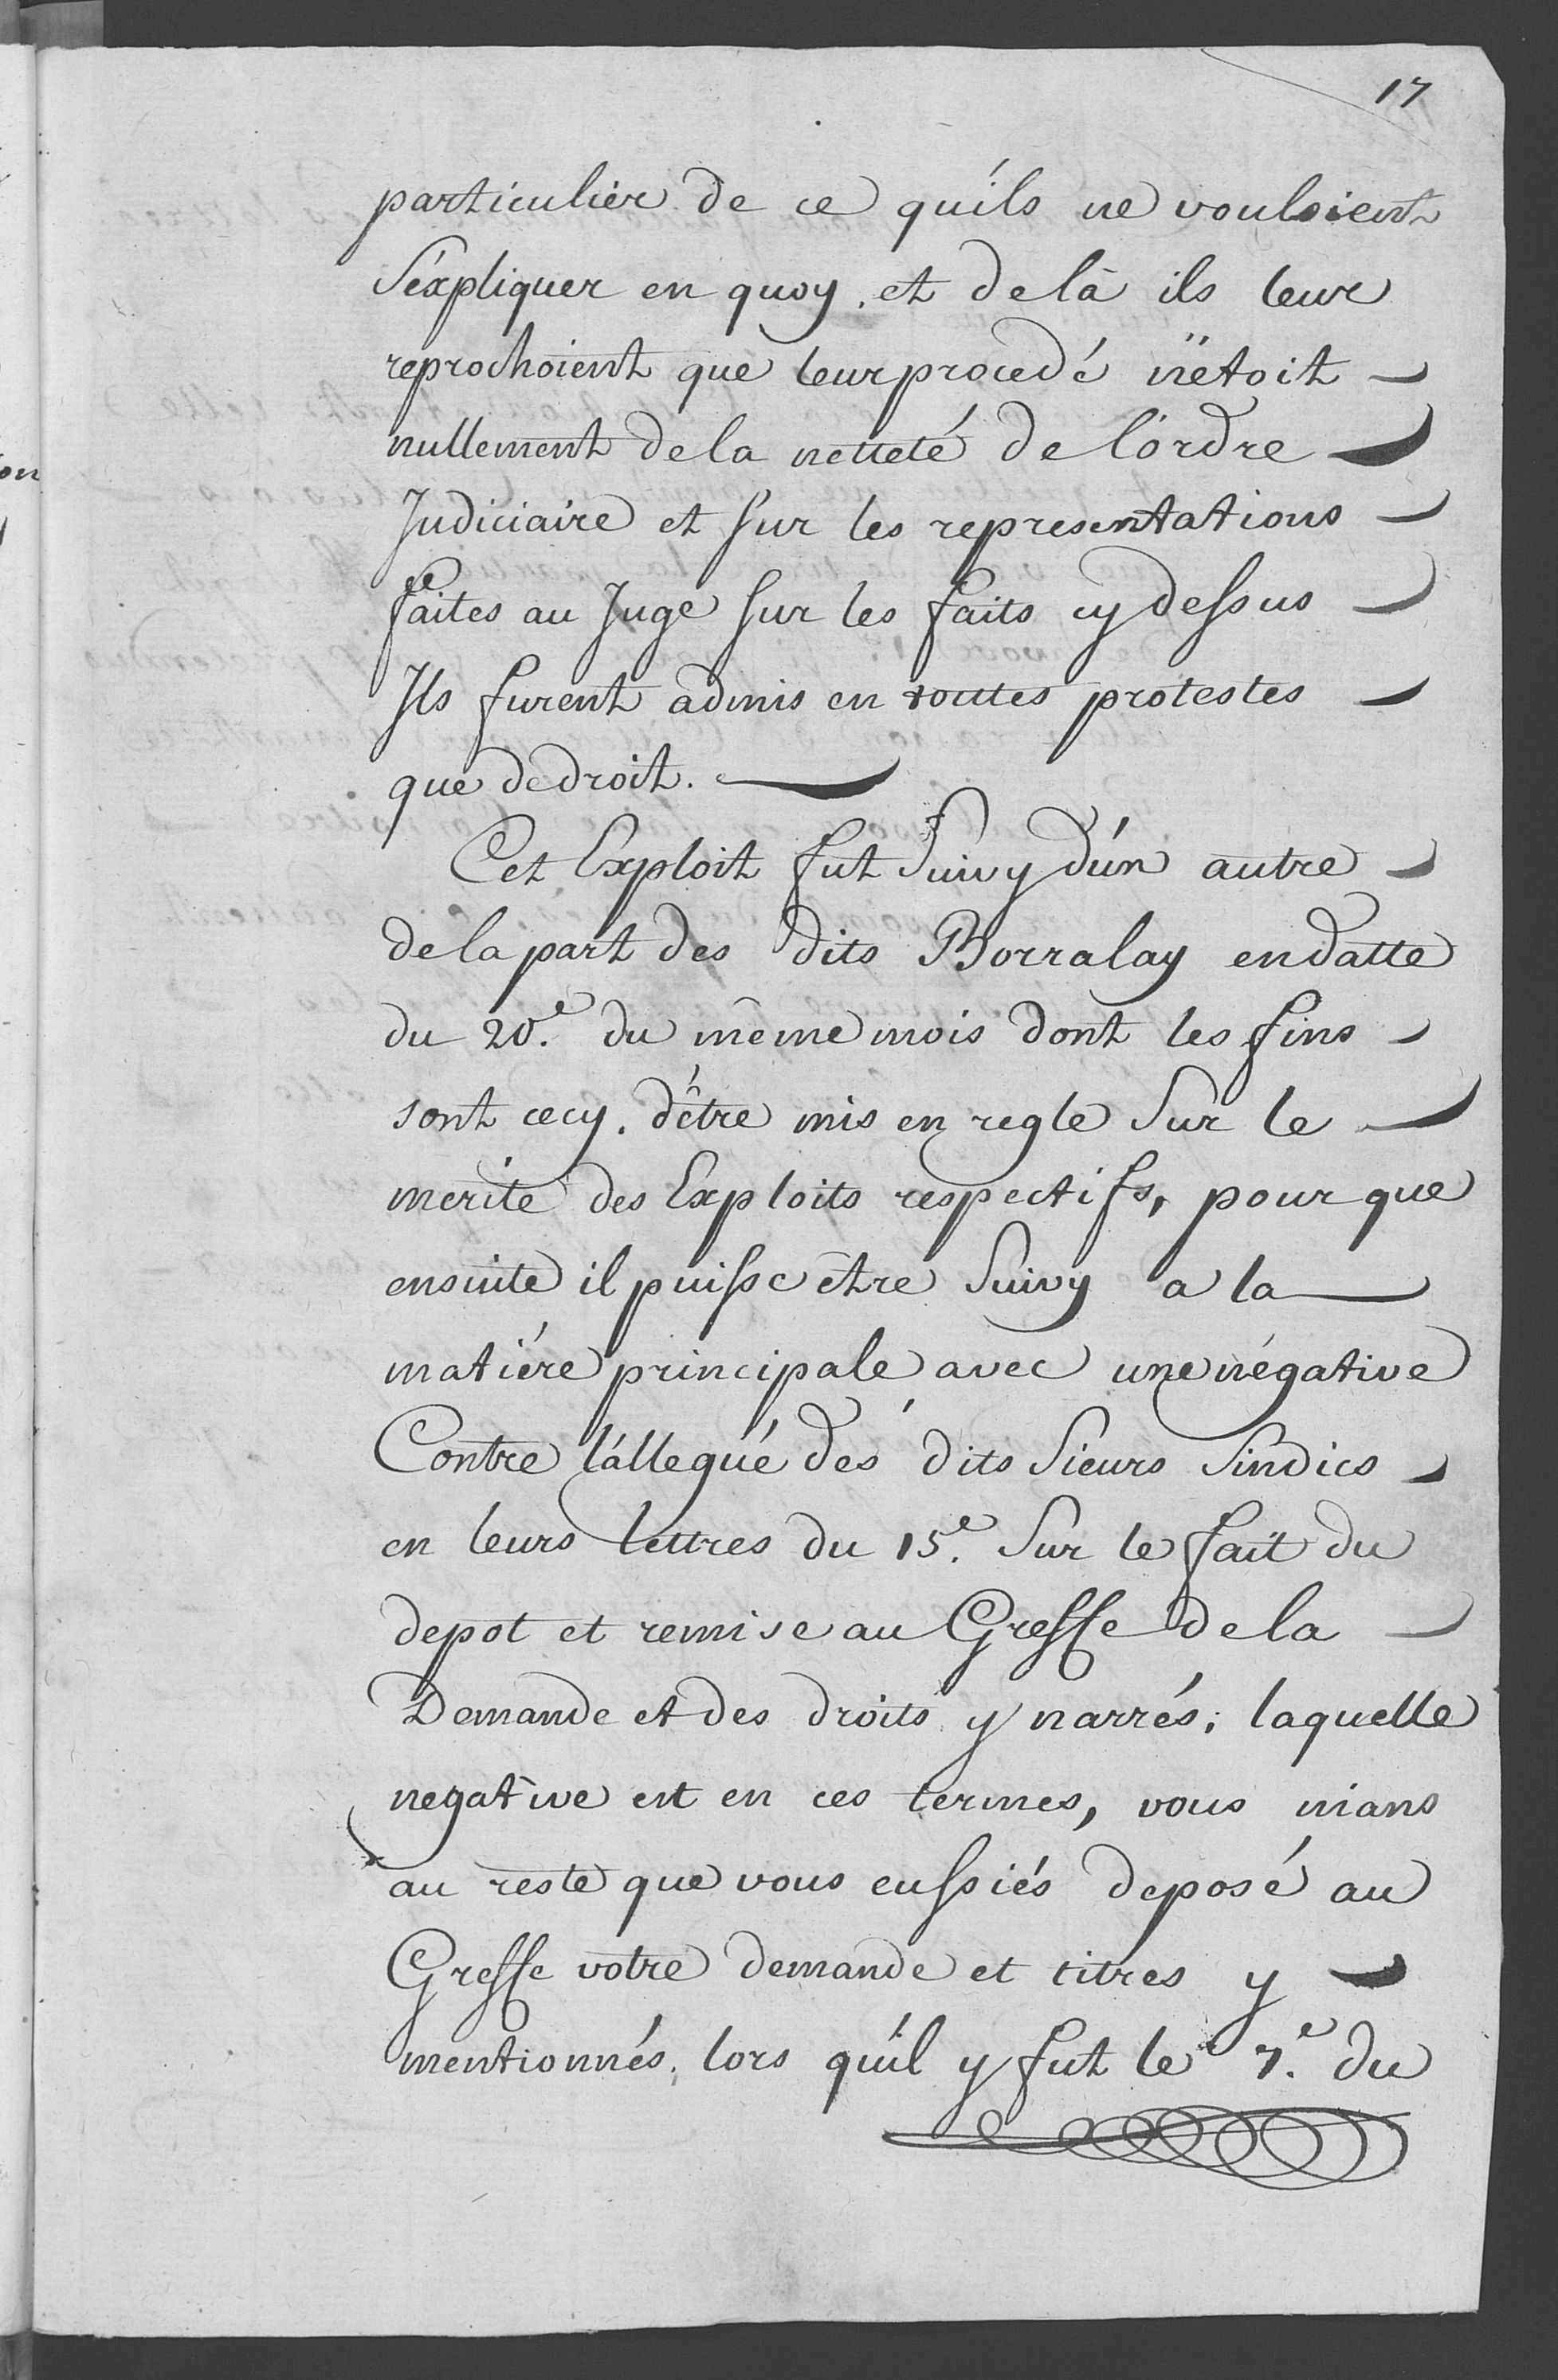 17
particulier de ce qu'ils ne vouloient
S'éxpliquer en quoy. et de là ils leur
reprochoient que leur procedé n'etoit
nullement de la netteté de l'ordre
Judiciaire et sur les representations
faites au Juge sur les faits cy dessus
Ils furent admis en toutes protestes
que de droit.
Cet Exploit fut Suivy d'un autre
de la part des dits Borralay en datte
du 20.e du même mois dont les fins
sont cecy. d'être mis en regle Sur le
merite des Exploits respectifs, pour que
ensuite il puisse être Suivy a la
matiére principale avec une négative
Contre l'allegué des dits Sieurs Sindics
en leurs lettres du 15.e Sur le fait du
depot et remise au Greffe de la
Demande et des droits y narrés; laquelle
negative est en ces termes, vous nians
au reste que vous eussiés deposé au
Greffe votre demande et titres y
mentionnés, lors qu'il y fut le 7.e du
on